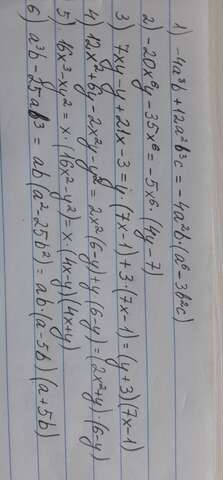 1) -4a⁸b+12a²b³c=-4a²b·(a⁶-3b²c)
2) -20x⁶y-35x⁶=-5x⁶·(4y-7)
3) 7xy-y+21x-3=y·(7x-1)+3·(7x-1)=(y+3)(7x-1)
4) 12x²+6y-2x²y-y²=2x²(6-y)+y(6-y)=(2x²+y)·(6-y)
5) 16x³-xy²=x·(16x²-y²)=x·(4x-y)(4x+y)
6) a³b-25ab³=ab(a²-25b²)=ab·(a-5b)(a+5b)